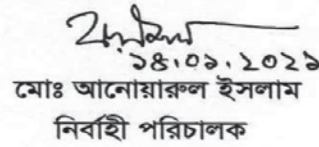 ১৪.০১.২০২১
মোঃ আনোয়ারুল ইসলাম
নির্বাহী পরিচালক